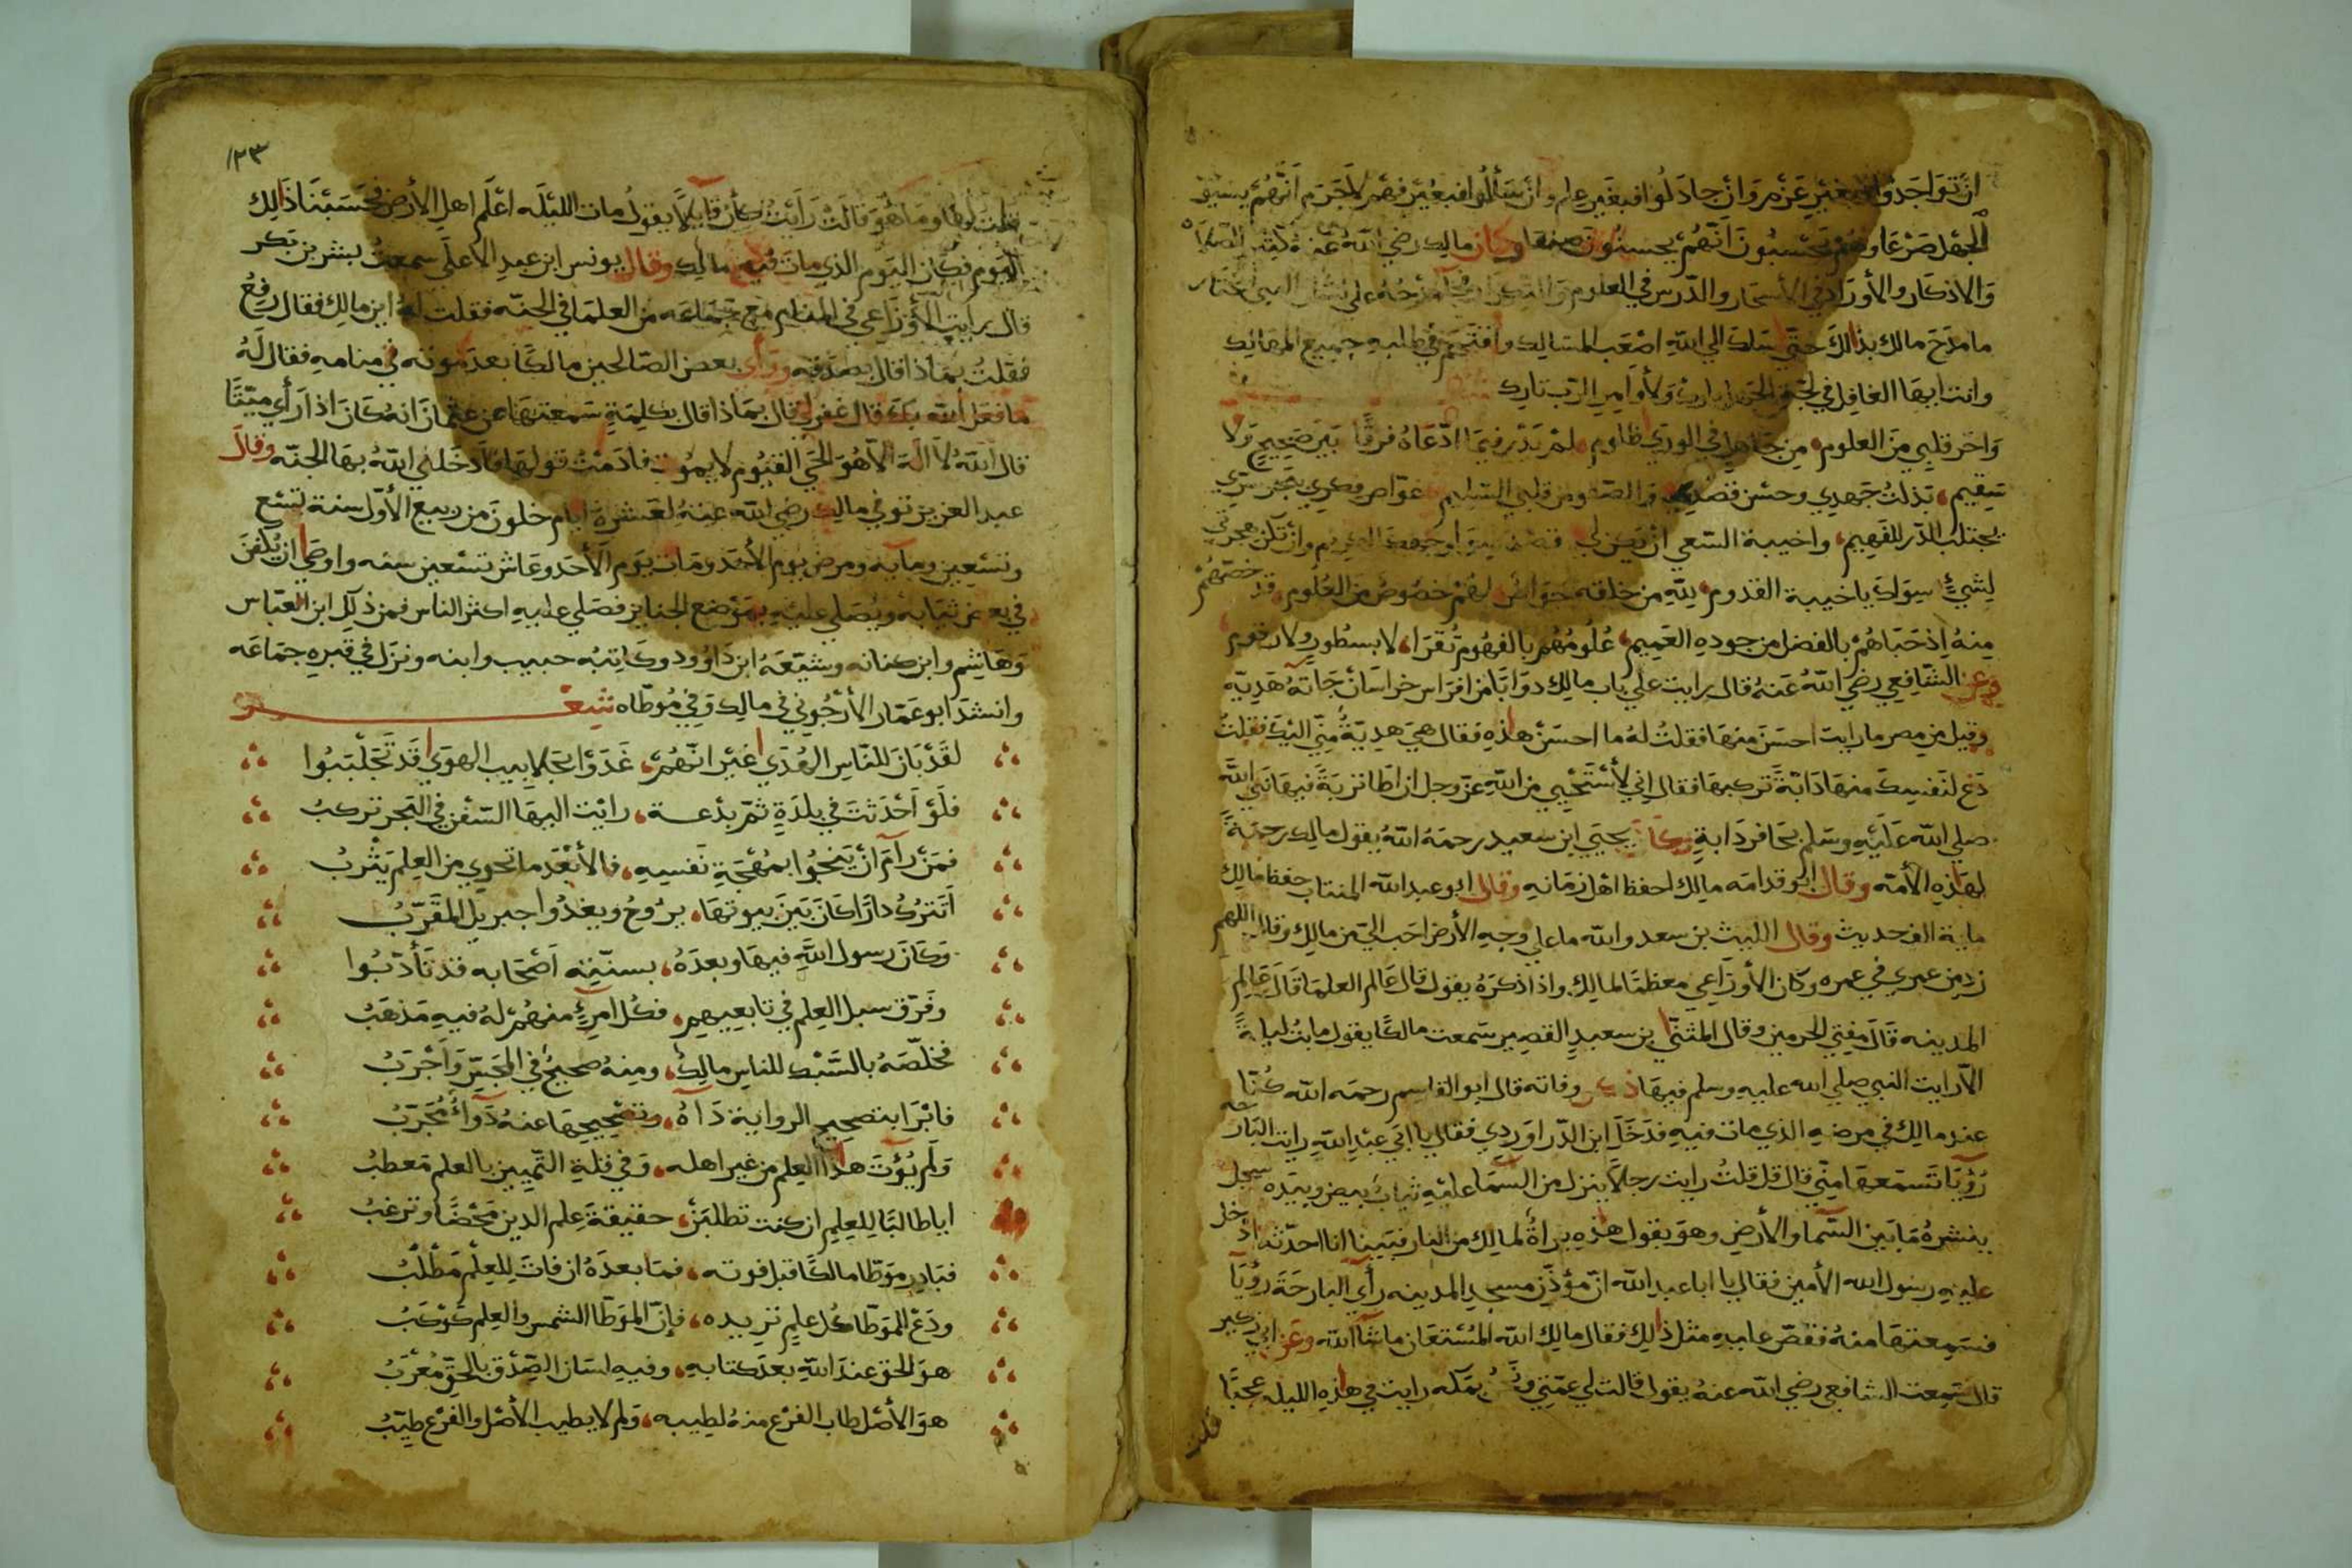 ان تواجدوا فبغير عزم وان جادلوا فبغير علم وان سألوا فبغير فهم لاجرم انهم يستبق
الجهل صرعا وهم يحسبون انهم يحسنون صنعا وكان مالك رضي الله عنه كثير الصلاة
والاذكار والأوراد في الأسحار والدرس في العلوم
ما مدح مالك بذالك حتى سلك الي الله اصعب المسالك واقتحم في طلبه جميع المهالك
وانت ايها الغافل في لجة ولأوامر الرب تارك
واحر قلبي من العلوم من جاهل في الوري ظلوم لم يدر فيما ادعاه فرقا بين صحيح ولا
سقيم بذلت جهدي وحسن قصدي والصفو من قلبي السليم غواص فكري ببحر سري
يجتلب الدر للفهيم واخيبة السعي ان يكن لي وان تكن هجرتي
لشيئ سواك يا خيبة القدوم لله من خلقه خواص لهم خصوص من العلوم قد خصهم
منه اذ حباهم بالفضل من جوده العميم علومهم بالفهوم تقرا لا بسطور ولا رقوم
وعن الشافعي رضي الله عنه قال رايت علي باب مالك دوابا من افراس خراسان جاته هدية
وقيل من مصر ما رايت احسن منها فقلت له ما احسن هاذه فقال هي هدية مني اليك فقلت
دع لنفسك منها دابة تركبها فقال اني لأستحيي من الله عز وجل ان اطا تربة فيها نبي الله
صلي الله عليه وسلم بحافر دابة وكان يحيي ابن سعيد رحمه الله يقول مالك رحمة
لهاذه الأمة وقال ابو قدامه مالك احفظ اهل زمانه وقال ابو عبد الله المنتاب حفظ مالك
ماية الف حديث وقال الليث بن سعد والله ما علي وجه الأرض احب الي من مالك وقال اللهم
زد من عمري في عمره وكان الأوزاعي معظما لمالك واذا ذكره يقول قال عالم العلما قال عالم
المدينه قال مفتي الحرمين وقال المثني بن سعيد القصير سمعت مالكا يقول ما بت ليلة
الا رايت النبي صلي الله عليه وسلم فيها ذكر وفاته قال ابو القاسم رحمه الله كنا
عند مالك في مرضه الذي مات فيه فدخل ابن الدراوردي فقال يا ابي عبد الله رايت البارحه
رؤيا تسمعها مني قال قل قلت رايت رجلا ينزل من السما عليه ثياب بيض وبيده سجل
ينشره ما بين السما والأرض وهو يقول هذه براة لمالك من النار فبينا انا احدثه اذ دخل
عليه رسول الله الأمين فقال يا ابا عبد الله ان مؤذن مسجد المدينه رأي البارحة رؤيا
فسمعتها منه فقص عليه مثل ذلك فقال مالك الله المستعان ما شا الله وعن ابي زكير
قال سمعت الشافعي رضي الله عنه يقول قالت لي عمتي بمكه رايت في هاذه الليله عجبا
قلت
١٢٣
قلت لها وما هو قالت رايت كأن قايلا يقول مات الليله اعلم اهل الأرض فحسبنا ذالك
اليوم فكان اليوم الذي مات فيه مالك وقال يونس ابن عبد الأعلي سمعت بشر بن بكر
قال رايت الأوزاعي في المنام مع جماعه من العلما في الجنه فقلت له اين مالك فقال رفع
فقلت بماذا قال بصدقه ورأي بعض الصالحين مالكا بعد موته في منامه فقال له
ما فعل الله بك قال غفر لي قال بماذا قال بكلمة سمعتها عن عثمان انه كان اذا رأي ميتا
قال الله لا اله الا هو الحي القيوم لا يموت فادمت قولها فادخلني الله بها الجنه وقال
عبد العزيز توفي مالك رضي الله عنه لعشرة ايام خلون من ربيع الأول سنة تسع
وتسعين ومايه ومرض يوم الأحد ومات يوم الأحد وعاش تسعين سنه واوصا ان يكفن
في بعض ثيابه ويصلي عليه بموضع الجنايز فصلي عليه اكثر الناس فمن ذلك ابن العباس
وهاشم وابن كنانه وشيعه ابن داوود وكاتبه حبيب وابنه ونزل في قبره جماعه
وانشد ابو عمار الأرجوني في مالك وفي موطاه شعر
لقد بان للناس الهدي غير انهم غدوا بجلابيب الهوي قد تجلببوا
فلو احدثت في بلدة ثم بدعة رايت اليها السفن في البحر تركب
فمن رام ان ينجوا بمهجة نفسيه فلا تعد ما تحوي من العلم يثرب
اتترك دارا كان بين بيوتها يروح ويغدوا جبريل المقرب
وكان رسول الله فيها وبعده بسنته اصحابه قد تأدبوا
وفرق سبل العلم في تابعيهم فكل امرئ منهم له فيه مذهب
فخلصه بالسبك للناس مالك ومنه صحيح في المجس واجرب
فابرا بتصحيح الرواية داه وتصحيحها عنه دوا مجرب
ولم يؤت هذا العلم من غير اهله وفي قلة التمييز بالعلم معطب
ايا طالبا للعلم ان كنت تطلبن حقيقة علم الدين محضا وترغب
فبادر موطا مالكا قبل فوته فما بعده ان فات للعلم مطلب
ودع للموطا كل علم تريده فإن الموطا الشمس والعلم كوكب
هو الحق عند الله بعد كتابه وفيه لسان الصدق بالحق معرب
هو الأصل طاب الفرع منه لطيبه ولم لا يطيب الأصل والفرع طيب